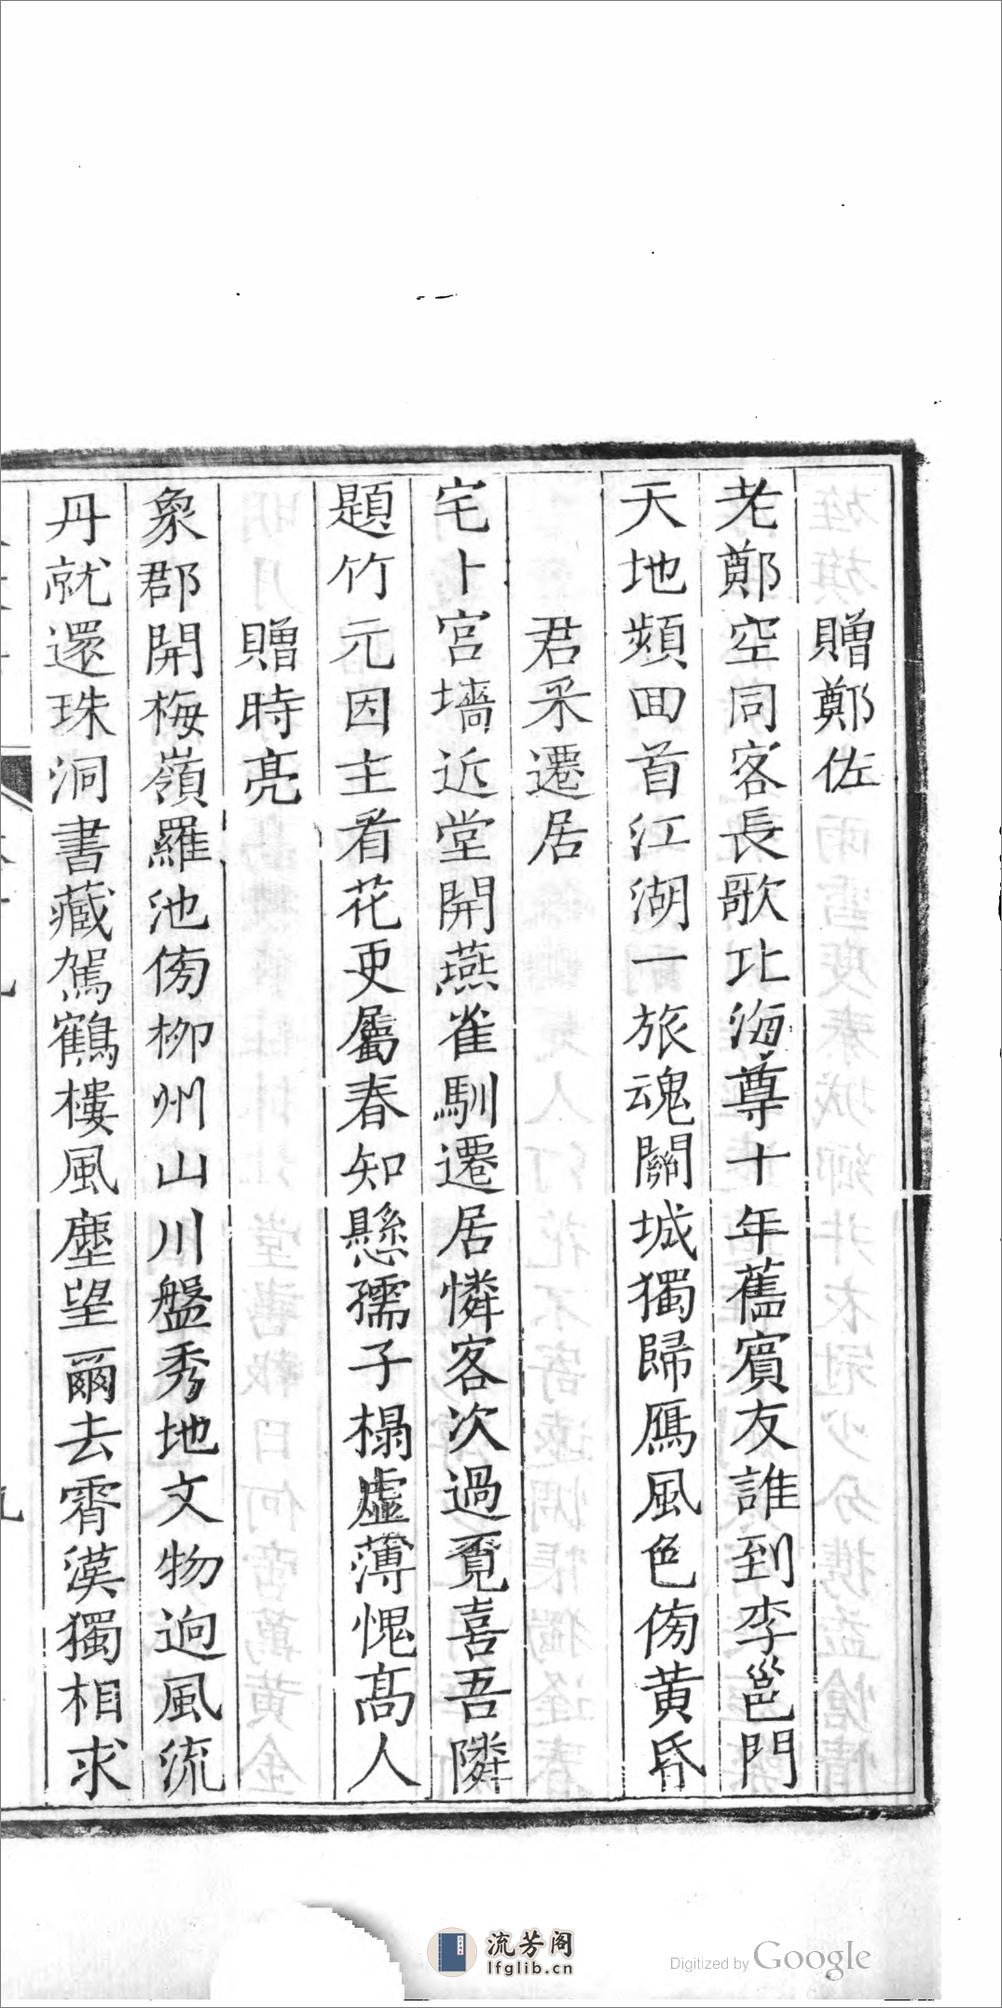 贈鄭佐
老鄭空同客長歌北海尊十年舊賓友誰到李邕門
天地頻回首江湖一旅魂關城獨歸鴈風色傍黃昏
君采遷居
宅卜宮墻近堂開燕雀馴遷居憐客次過覔喜吾隣
題竹元因主看花更屬春知懸孺子榻虛薄愧高人
贈時亮
象郡開梅嶺羅池傍柳州山川盤秀地文物迥風流
丹就還珠洞書藏駕鶴樓風塵望爾去霄漢獨相求
流芳阁
lfglib.cn
Digitized by Google